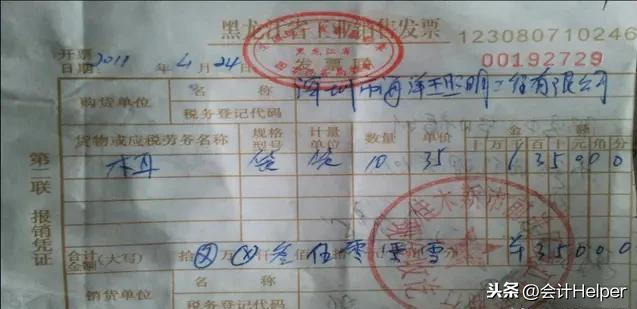 黑龙江省工业销售发票
123080710246
00192729
黑龙江省
发票联
开票日期: 2011 年 4 月 24 日
购货单位 名称 深圳市海洋王照明工程有限公司
税务登记代码
货物或应税劳务名称 规格型号 计量单位 数量 单价 金额
十万千百十元角分
木耳 袋 袋 10 35 ¥35000
合计金额 (大写) 拾⊗万⊗仟叁佰伍零零零 ¥35000
销货单位 名称
税务登记代码
第二联 报销凭证
头条 @会计Helper